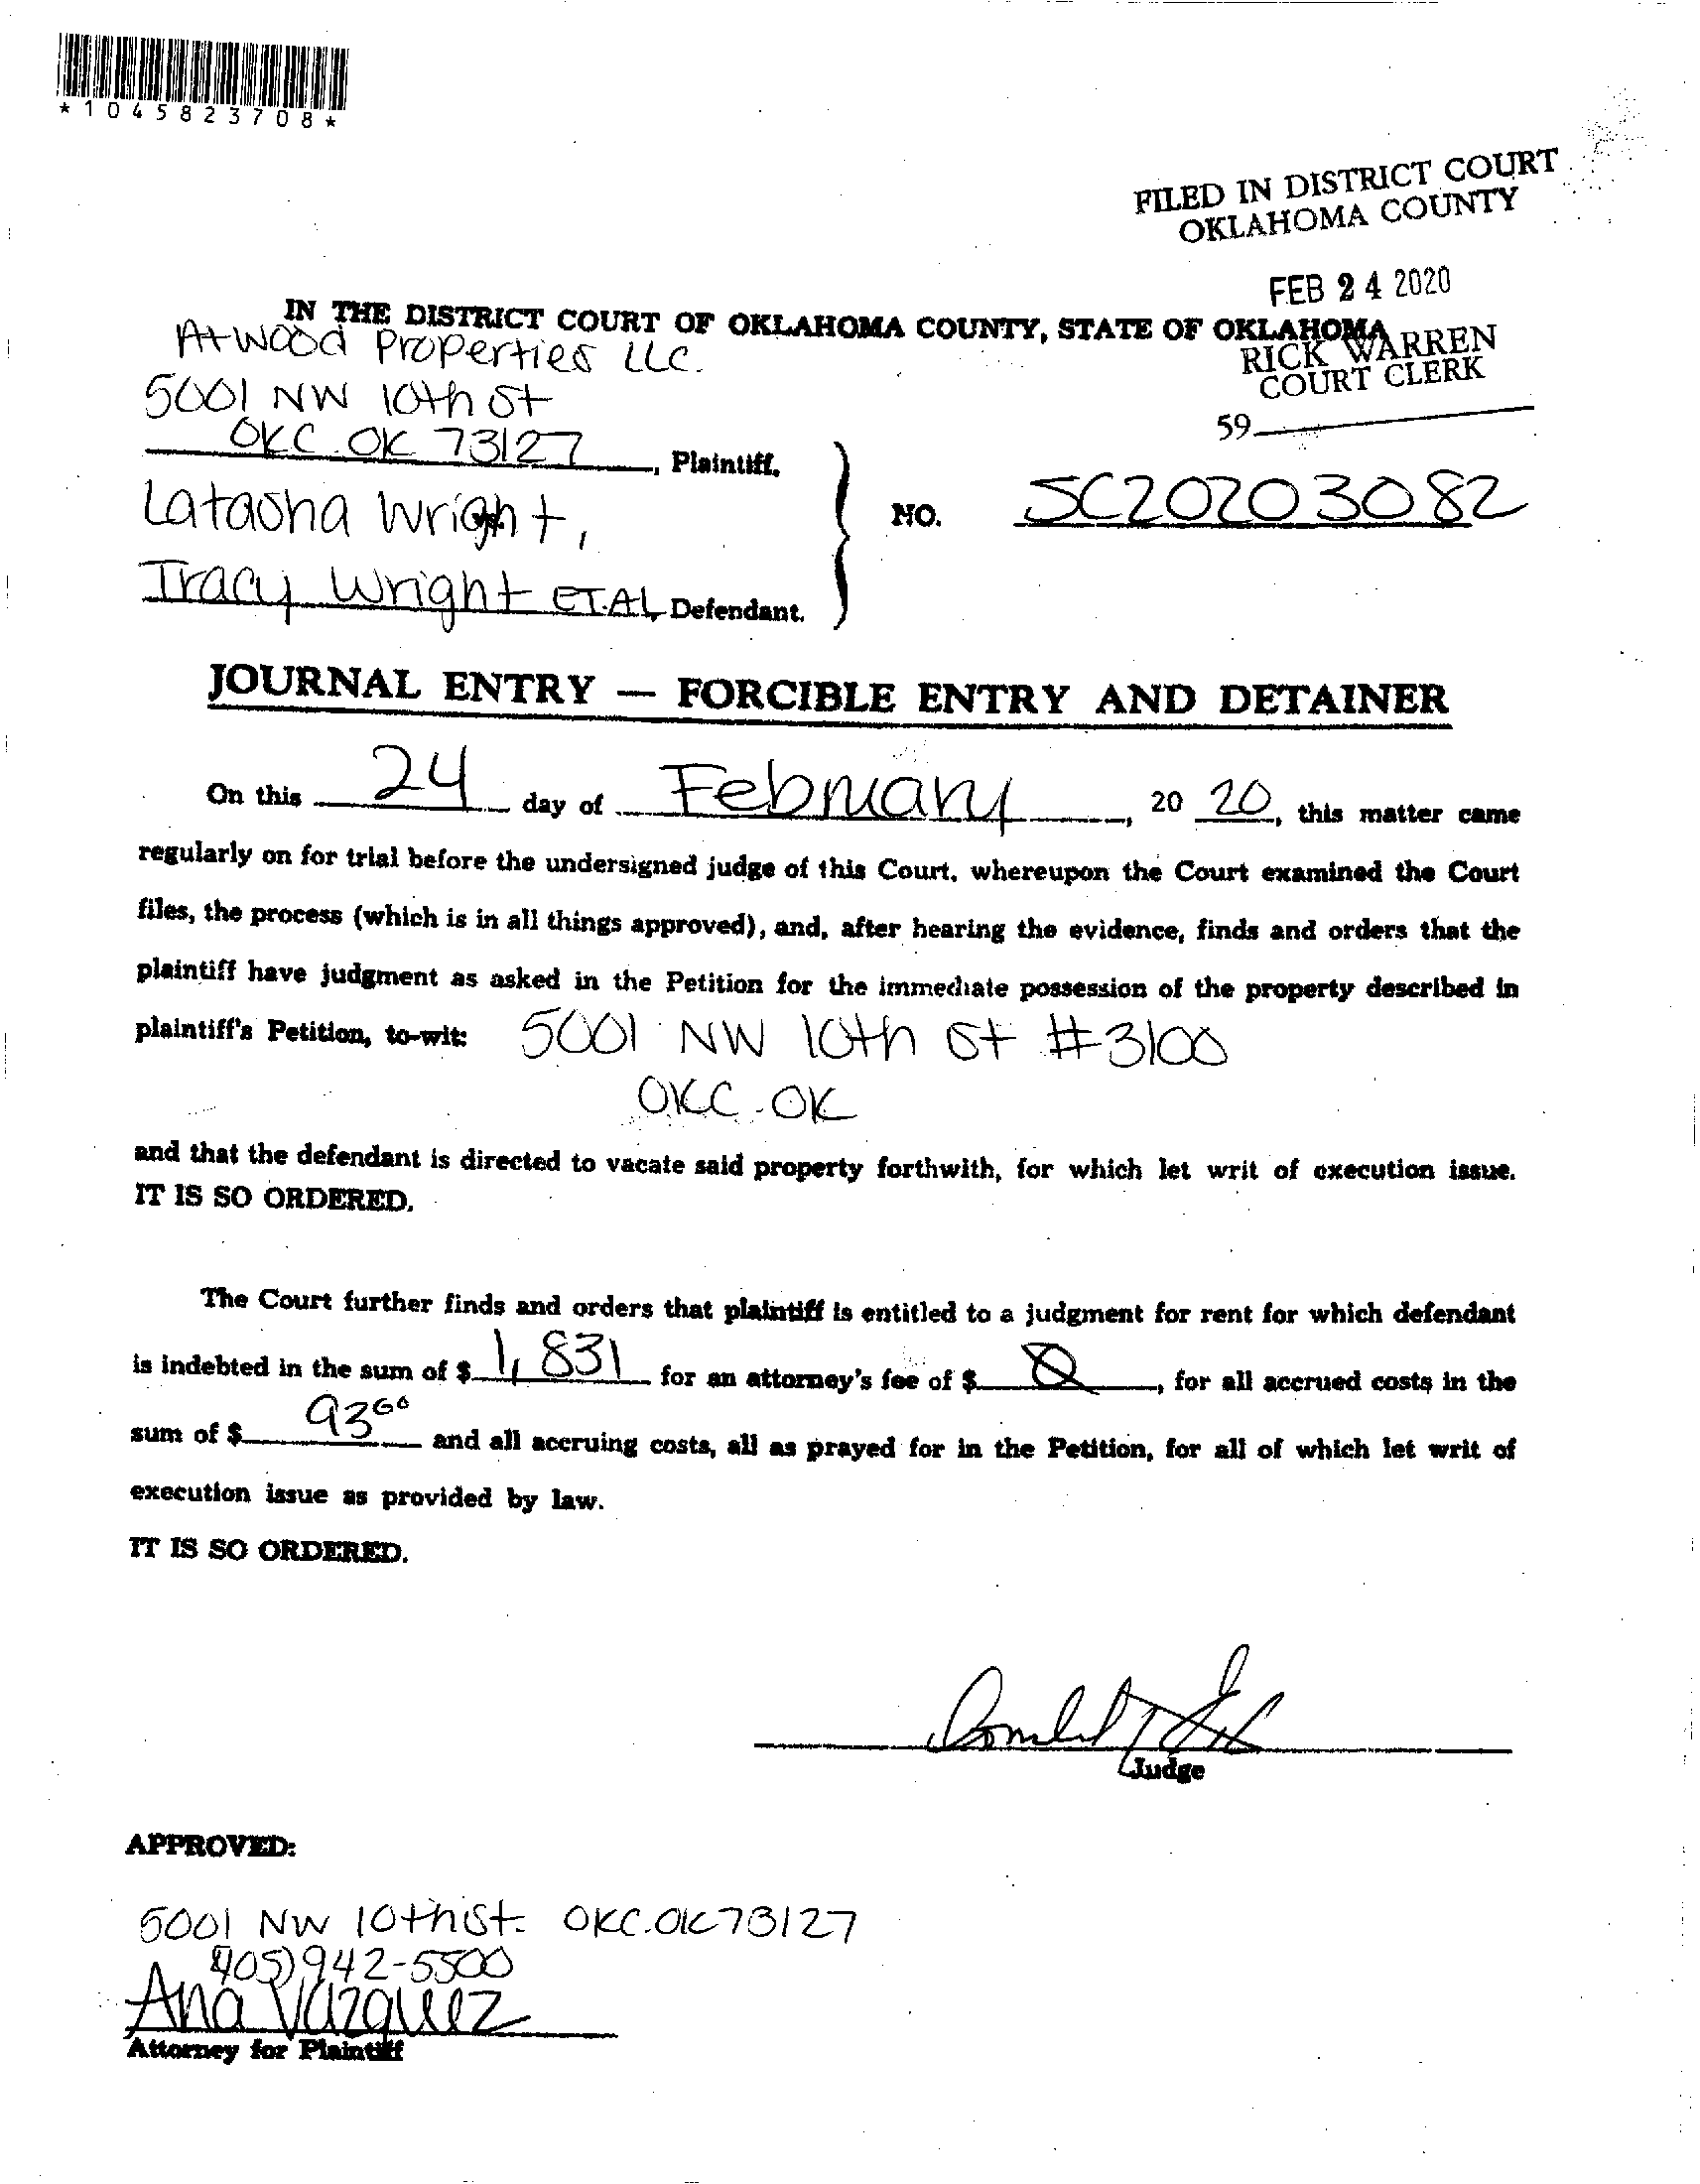 *1045823708*
FILED IN DISTRICT COURT
OKLAHOMA COUNTY
FEB 24 2020
IN THE DISTRICT COURT OF OKLAHOMA COUNTY, STATE OF OKLAHOMA
RICK WARREN
COURT CLERK
59
Atwood Properties LLC.
5001 NW 10th St
OKC.OK 73127, Plaintiff,
vs.
Latasha Wright,
Tracy Wright ET.AL, Defendant.
NO. SC20203082
JOURNAL ENTRY — FORCIBLE ENTRY AND DETAINER
On this 24 day of February, 20 20, this matter came
regularly on for trial before the undersigned judge of this Court, whereupon the Court examined the Court
files, the process (which is in all things approved), and, after hearing the evidence, finds and orders that the
plaintiff have judgment as asked in the Petition for the immediate possession of the property described in
plaintiff's Petition, to-wit: 5001 NW 10th St #3100
OKC.OK
and that the defendant is directed to vacate said property forthwith, for which let writ of execution issue.
IT IS SO ORDERED.
The Court further finds and orders that plaintiff is entitled to a judgment for rent for which defendant
is indebted in the sum of $ 1,831 for an attorney's fee of $ 0, for all accrued costs in the
sum of $ 93⁰⁰ and all accruing costs, all as prayed for in the Petition, for all of which let writ of
execution issue as provided by law.
IT IS SO ORDERED.
Judge
APPROVED:
5001 NW 10th St. OKC.OK 73127
(405)942-5500
Ana Vazquez
Attorney for Plaintiff